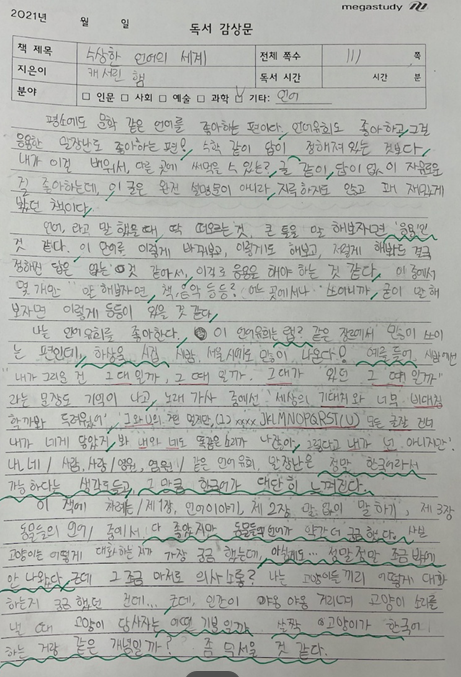 megastudy
2021년 월 일
독서 감상문
책 제목 수상한 언어의 세계 전체 쪽수 111 쪽
지은이 캐서린 햄 독서 시간 시간 분
분야 □ 인문 □ 사회 □ 예술 □ 과학 기타: 언어
평소에도 문학 같은 언어를 좋아하는 편이다. 언어유희도 좋아하고, 그걸
응용한 말장난도 좋아하는 편! 수학 같이 답이 정해져 있는 것보다,
내가 이걸 배워서, 다른 곳에 써먹을 수 있는? 글 같이 답이 없이 자유로운
걸 좋아하는데, 이 글은 완전 설명문이 아니라, 지루하지도 않고 꽤 재밌게
봤던 책이다.
언어, 라고 말 했을 때, 딱 떠오르는 것, 큰 틀을 말 해보자면 '응용'인
것 같다. 이 언어를 이렇게 바꿔보고, 이렇게도 해보고, 저렇게 해봐도 결국
정해진 답은 없는 것 같아서, 이걸로 응용을 해야 하는 것 같다. 이 중에서
몇 개만 말 해보자면, 책, 음악 등등? 어느 곳에서나 쓰이니까, 굳이 말 해
보자면 이렇게 등등이 있을 것 같다.
나는 언어유희를 좋아한다. 이 언어유희는 랩? 같은 장르에서 많이 쓰이
는 편인데, 하상욱 시집 시밤, 서울 시에도 많이 나온다! 예를 들어,
"내가 그리운 건 그대일까, 그 때일까. 그대가 있던 그 때일까"
라는 문장도 기억이 나고, 노래 가사 중에선 세상의 기대치와 너무 비대칭
할까봐 두려웠어', '그와 U의 JKLMNOPQRST(U) 모든 글자 건너
내가 네게 닿았지, 봐 내와 네도 똑같은 소리가 나잖아, 그렇다고 내가 넌 아니지만'.
나, 네 / 사람, 사랑 / 영원, / 같은 언어유희, 말장난은 정말 한국어라서
가능하다는 생각도 들고, 그 만큼 한국어가 대단히 느껴진다.
이 책에 차례는 / 제 1장, 언어이야기, 제 2장 말 없이 말 하기, 제 3장
동물들의 언어 / 중에서 다 좋았지만 동물들의 언어가 약간 더 궁금했다.
고양이는 어떻게 대화하는 지가 가장 궁금했는데, 아쉽게도... 정말 조금 조금 밖에
안 나왔다. 근데 그 조금 마저도 의사소통? 나는 고양이들 끼리 어떻게 대화
하는지 궁금했던 건데..., 근데, 인간이 야옹 야옹 거리며 고양이 소리를
낼 때 고양이 당사자는 어떤 기분일까, 살짝 고양이가 한국어
하는 거랑 같은 개념일까? 좀 무서울 것 같다.